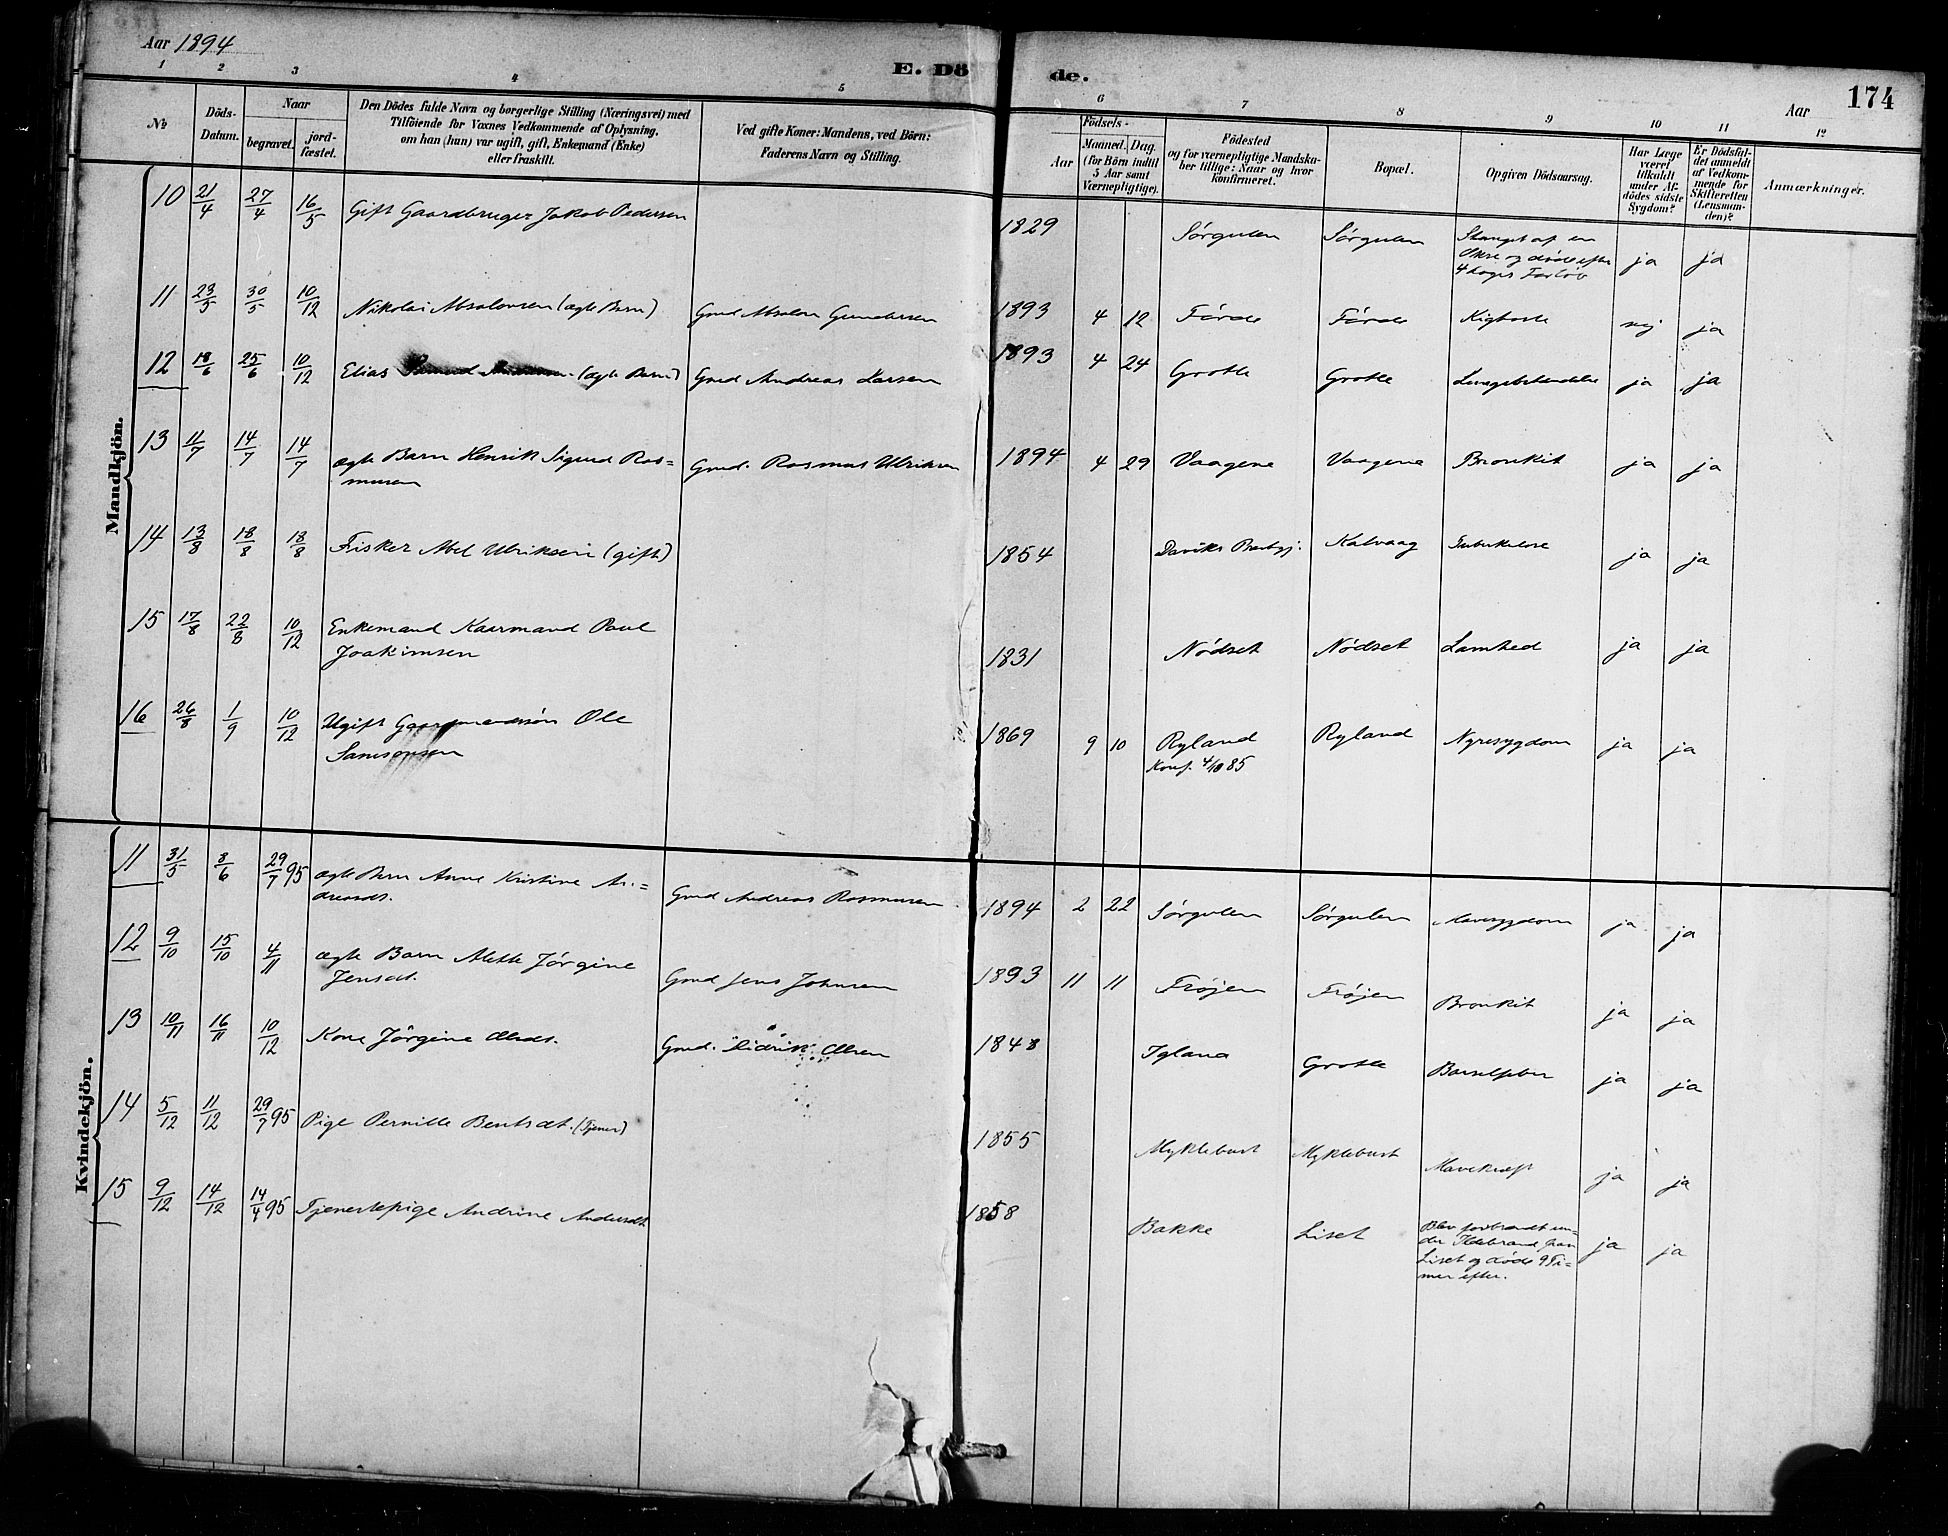 Aar 1894
E. Dö de.
Aar
174
1 2 3 4 5 6 7 8 9 10 11 12
No.
Döds-Datum.
Naar
begravet.
jord-fæstet.
Den Dödes fulde Navn og borgerlige Stilling (Næringsvei) med
Tilföiende for Voxnes Vedkommende af Oplysning,
om han (hun) var ugift, gift, Enkemand (Enke)
eller fraskilt.
Ved gifte Koner: Mandens, ved Börn:
Faderens Navn og Stilling.
Födsels-
Aar
Maaned. Dag.
(for Börn indtil
5 Aar samt
Værnepligtige).
Födested
og for værnepligtige Mandska-
ber tillige: Naar og hvor
konfirmeret.
Bopæl.
Opgiven Dödsaarsag.
Har Læge
været
tilkaldt
under Af-
dödes sidste
Sygdom?
Er Dödsfal-
det anmeldt
af Vedkom-
mende for
Skifteretten
(Lensman-
den)?
Anmærkninger.
Mandkjön.
10 21/4 27/4 16/5 Gift Gaardbruger Jakob Pedersen 1829 Sørgulen Sørgulen Stanget af en
Okse og døde efter
4 Dages Forløb ja ja
11 23/5 30/5 10/12 Nikolai Absalonsen (ægte Barn) Gmd Absalon Gundersen 1893 4 12 Førde Førde Kighoste nej ja
12 18/6 25/6 10/12 Elias (ægte Barn) Gmd Andreas Larsen 1893 4 24 Grotle Grotle Lungebetændelse ja ja
13 11/7 14/7 14/7 ægte Barn Henrik Sigurd Ras=
musen Gmd. Rasmus Ulriksen 1894 4 29 Vaagene Vaagene Bronkit ja ja
14 13/8 18/8 18/8 Fisker Abel Ulriksen (gift) 1854 Daviks Præstgj. Kalvaag Tuberkulose ja ja
15 17/8 22/8 10/12 Enkemand Kaarmand Paul
Joakimsen 1831 Nødset Nødset Lamhed ja ja
16 26/8 1/9 10/12 Ugift Gaardmandssøn Ole
Samsonsen 1869 9 10 Ryland
Konf. 4/10 85 Ryland Nyresygdom ja ja
Kvindekjön.
11 31/5 8/6 29/7 95 ægte Barn Anne Kristine An=
dreasdt. Gmd Andreas Rasmusen 1894 2 22 Sørgulen Sørgulen Mavesygdom ja ja
12 9/10 15/10 4/11 ægte Barn Alette Jørgine
Jensdt. Gmd Jens Johnsen 1893 11 11 Frøjen Frøjen Bronkit ja ja
13 10/11 16/11 10/12 Kone Jørgine Olsdt. Gmd. Didrik Olsen 1848 Igland Grotle Barselfeber ja ja
14 5/12 11/12 29/7 95 Pige Pernille Bentsdt. (Tjener) 1855 Myklebust Myklebust Mavekræft ja ja
15 9/12 14/12 14/4 95 Tjenestepige Andrine Andersdt 1858 Bakke Liset Blev forbrændt un-
der Ildebrand paa
Liset og døde 9 Ti=
mer efter. ja ja